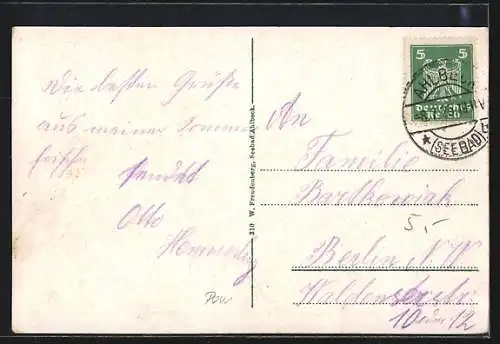 Die besten Grüße
aus meiner Sommer
frische
sendet
Otto
310 W. Freudenberg, Seebad Ahlbeck.
5 5
DEUTSCHES
REICH
AHLBECK
(SEEBAD)
An
Familie
Bartkowiak
5,-
Berlin N.W
Waldenserstr.
10 12